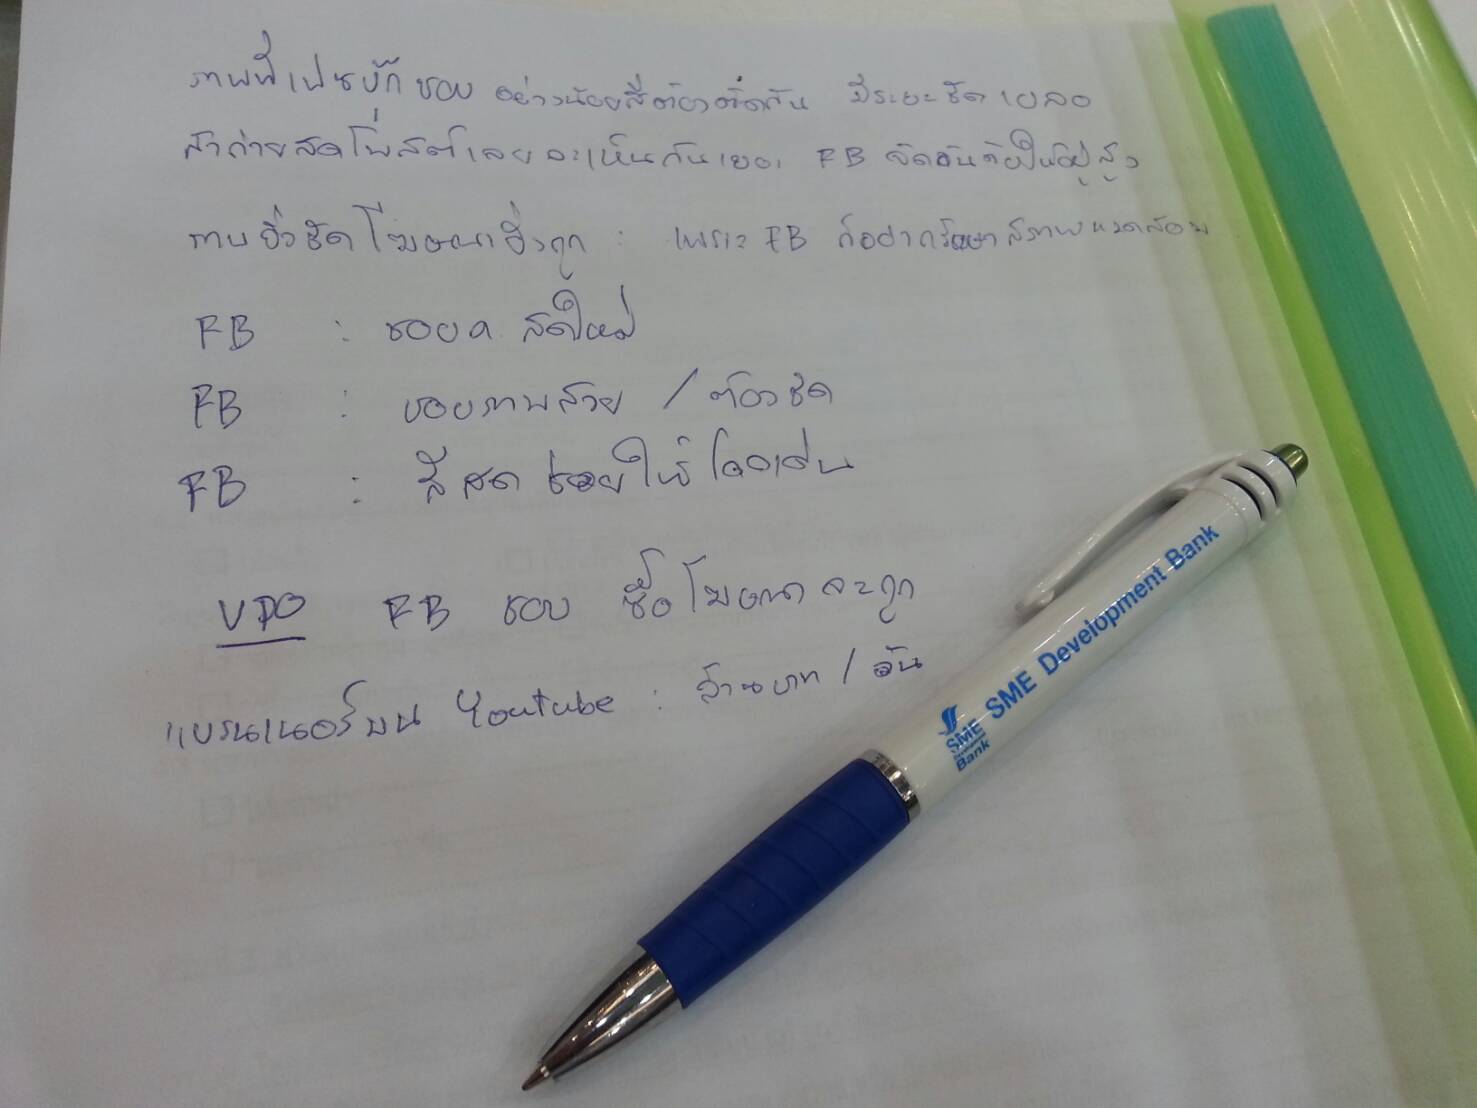 ภาพที่เฟซบุ๊กชอบ อย่างน้อยสีต้องตัดกัน มีระยะชัดเบลอ
ถ้าถ่ายสดโพสต์เลยจะเห็นกันเยอะ FB จัดอันดับให้อยู่สูง
ภาพยิ่งชัดโฆษณายิ่งถูก : เพราะ FB ก็อยากรักษาสภาพแวดล้อม
FB : ชอบค. สดใหม่
FB : ชอบภาพสวย / ต้องชัด
FB : สีสด ช่วยให้โดดเด่น
VDO FB ชอบ ซื้อโฆษณาจะถูก
แบรนเนอร์บน Youtube : ล้านบาท / วัน
SME Development Bank
SME
Development
Bank